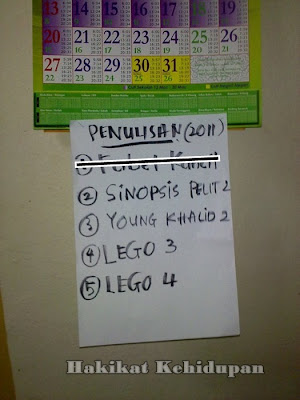 13 14 15 16 17 18 19
20 21 22 23 24 25 26
27 28 29 30 31
PENULISAN (2011)
①
② SINOPSIS PELIT 2
③ YOUNG KHALID 2
④ LEGO 3
⑤ LEGO 4
Hakikat Kehidupan